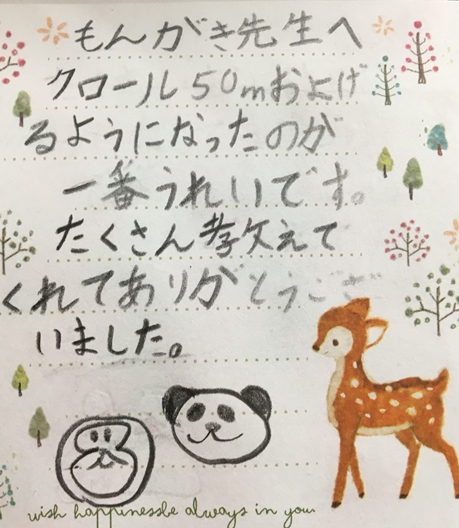 もんがき先生へ
クロール50mおよげ
るようになったのが
一番うれいです。
たくさん教えて
くれてありがとうござ
いました。
wish happinessbe always in you